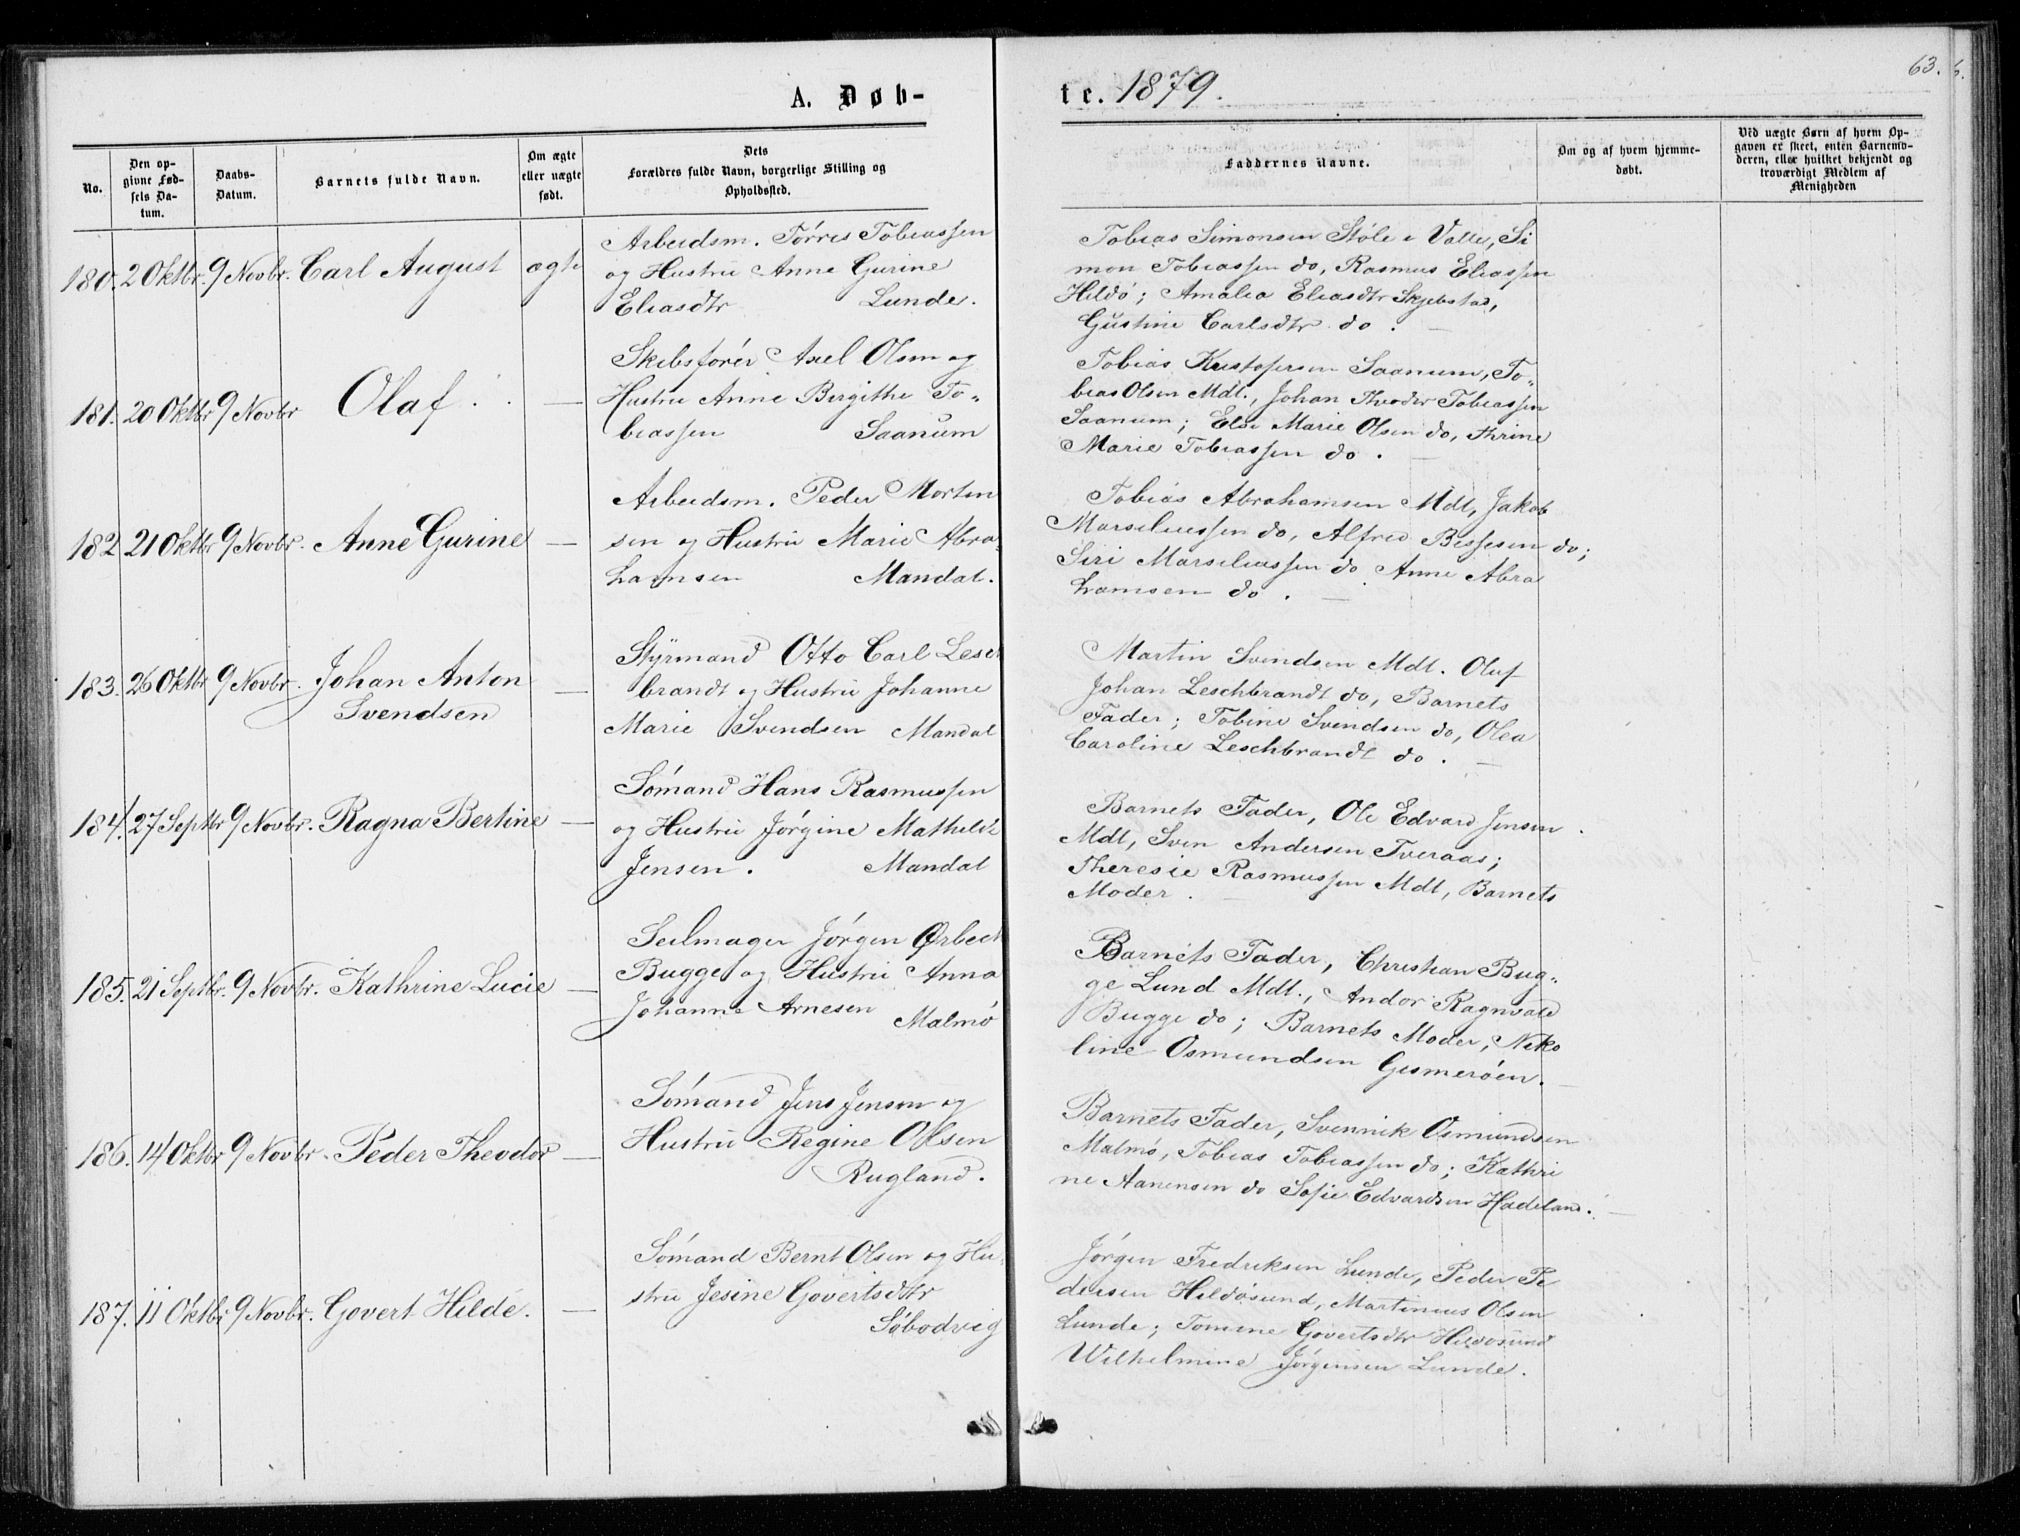 A. Døb-
te. 1879.
63.
No.
Den op-
givne Fød-
sels Da-
tum.
Daabs-
Datum.
Barnets fulde Navn.
Om ægte
eller uægte
født.
Dets
Forældres fulde Navn, borgerlige Stilling og
Opholdssted.
Faddernes Navne.
Om og af hvem hjemme-
døbt.
Ved uægte Børn af hvem Op-
gaven er skeet, enten Barnemo-
deren, eller hvilket bekjendt og
troværdigt Medlem af
Menigheden
180. 2 Oktbr. 9 Novbr. Carl August ægte
Arbeidsm. Tørres Tobiassen
og Hustru Anne Gurine
Eliasdtr Lunde.
Tobias Simonsen Støle i Valle, Si
mon Tobiassen do, Rasmus Eliassen
Hildø; Amalia Eliasdtr Skjebstad,
Gustine Carlsdtr do.
181. 20 Oktbr 9 Novbr Olaf. —
Skibsfører Axel Olsen og
Hustru Anne Birgithe To-
biassen Saanum
Tobias Kristofersen Saanum, To-
bias Olsen Mdl., Johan Theodor Tobiassen
Saanum; Else Marie Olsen do, Thrine
Marie Tobiassen do.
182 21 Oktbr 9 Novbr. Anne Gurine —
Arbeidsm. Peder Morten
sen og Hustru Marie Abra-
hamsen Mandal.
Tobias Abrahamsen Mdl, Jakob
Marseliussen do, Alfred Bessesen do;
Siri Marseliussen do Anne Abra
hamsen do. —
183. 26 Oktbr 9 Novbr. Johan Anton
Svendsen —
Styrmand Otto Carl Lesch
brandt og Hustru Johanne
Marie Svendsen Mandal
Martin Svendsen Mdl. Oluf
Johan Leschbrandt do, Barnets
Fader; Tobine Svendsen do, Olea
Caroline Leschbrandt do. —
184. 27 Septbr 9 Novbr. Ragna Bertine —
Sømand Hans Rasmussen
og Hustru Jørgine Mathilde
Jensen. Mandal
Barnets Fader, Ole Edvard Jensen
Mdl, Sven Andersen Tveraas;
Theresie Rasmussen Mdl, Barnets
Moder. —
185. 21 Septbr. 9 Novbr. Kathrine Lucie —
Seilmager Jørgen Ørbeck
Bugge og Hustru Anna
Johanne Arnesen Malmø
Barnets Fader, Christian Bug-
ge Lund Mdl., Andor Ragnvald
Bugge do; Barnets Moder, Niko
line Osmundsen Gismerøen. —
186. 14 Oktbr 9 Novbr. Peder Theodor —
Sømand Jens Jensen og
Hustru Regine Olsen
Rugland.
Barnets Fader, Svennik Osmundsen
Malmø, Tobias Tobiassen do; Kathri
ne Aanensen do Sofie Edvardsen Hadeland. —
187. 11 Oktbr 9 Novbr. Govert Hilde. —
Sømand Bernt Olsen og Hu-
stru Jesine Govertsdtr
Søbodvig
Jørgen Fredriksen Lunde, Peder Pe
dersen Hildøsund, Martinius Olsen
Lunde; Tomine Govertsdtr Hildøsund
Wilhelmine Jørgensen Lunde.